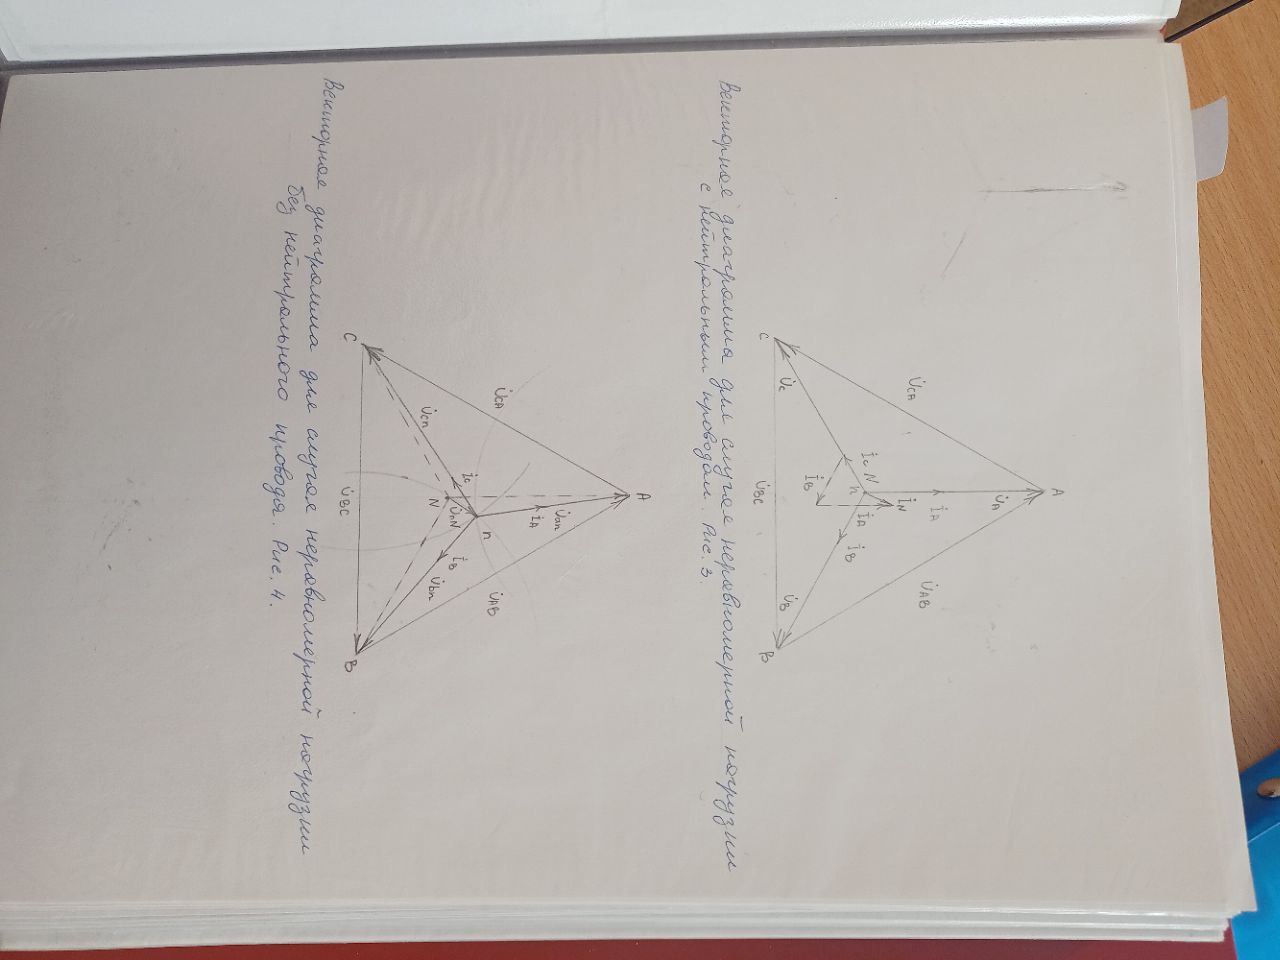 A
U̇A
İA
U̇CA
U̇AB
İN
İC N
İA
n
İB
İB
U̇C
U̇B
C
B
U̇BC
Векторная диаграмма для случая неравномерной нагрузки
с нейтральным проводом. Рис. 3.
A
U̇an
İA
U̇CA
U̇AB
n
İC
İB
U̇nN
U̇cn
N
U̇bn
C
B
U̇BC
Векторная диаграмма для случая неравномерной нагрузки
без нейтрального провода. Рис. 4.